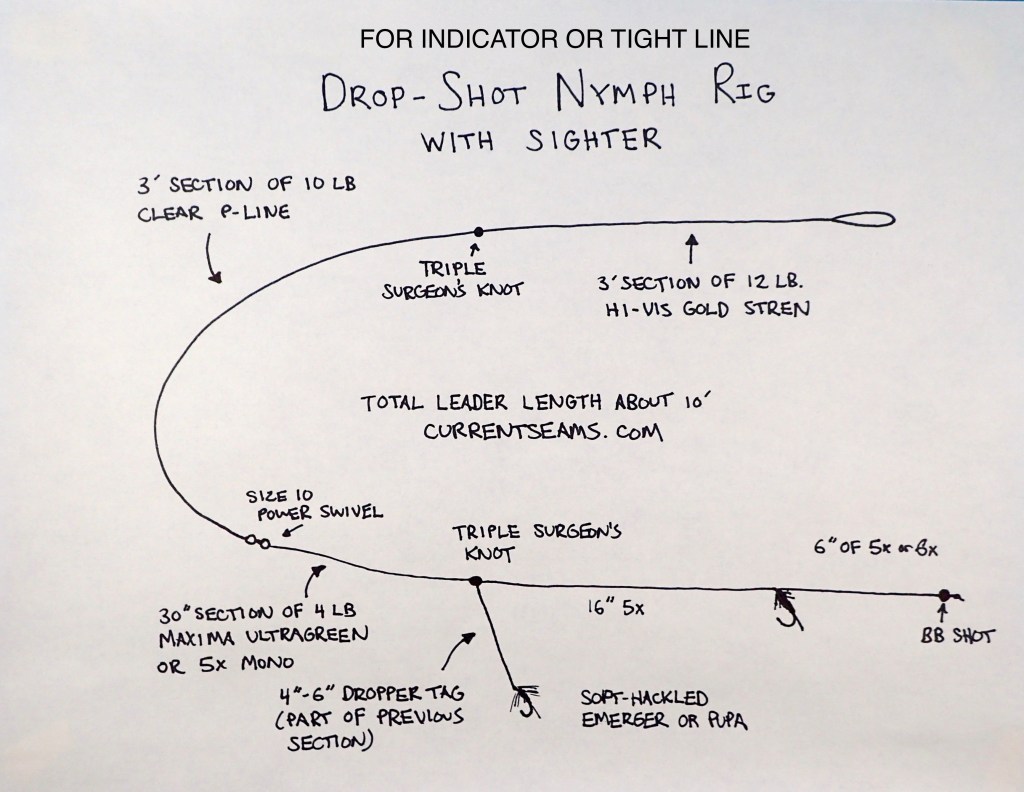 FOR INDICATOR OR TIGHT LINE
DROP-SHOT NYMPH RIG
WITH SIGHTER
3' SECTION OF 10 LB
CLEAR P-LINE
TRIPLE
SURGEON'S KNOT
3' SECTION OF 12 LB.
HI-VIS GOLD STREN
TOTAL LEADER LENGTH ABOUT 10'
CURRENTSEAMS.COM
SIZE 10
POWER SWIVEL
TRIPLE SURGEON'S
KNOT
6" OF 5x or 6x
30" SECTION OF 4 LB
MAXIMA ULTRAGREEN
OR 5x MONO
16" 5x
BB SHOT
4"-6" DROPPER TAG
(PART OF PREVIOUS
SECTION)
SOFT-HACKLED
EMERGER OR PUPA